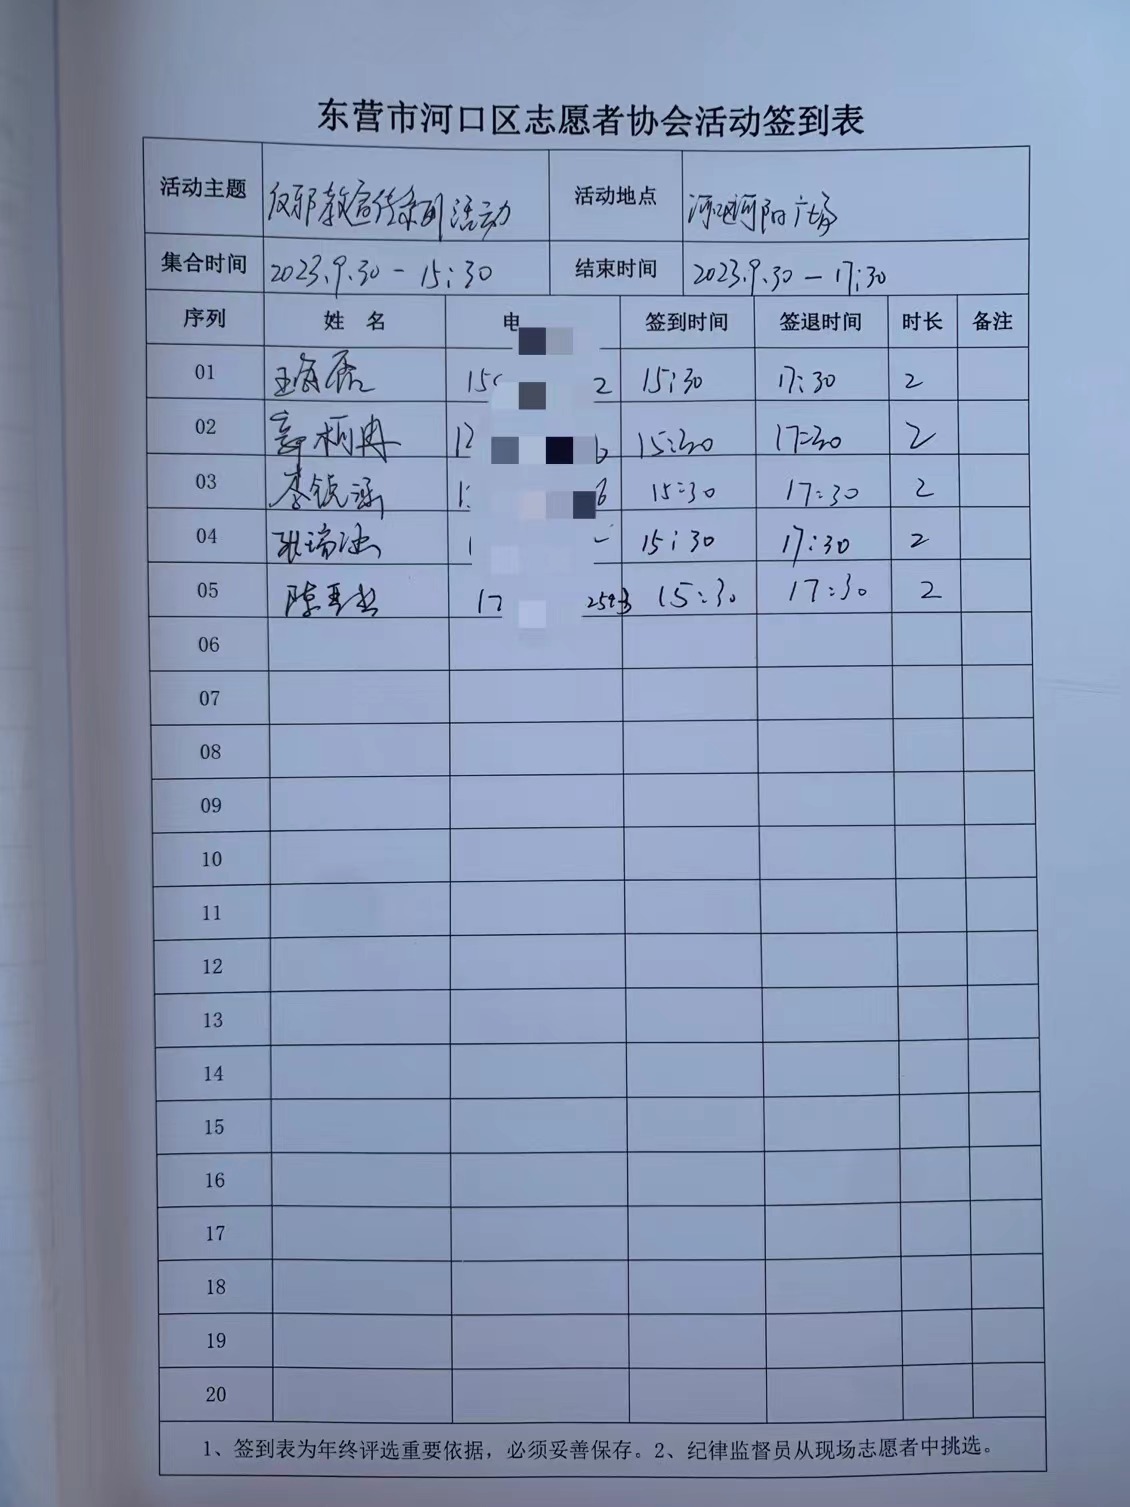 东营市河口区志愿者协会活动签到表
活动主题 反邪教宣传系列活动 活动地点 河口区河阳广场
集合时间 2023.9.30 - 15:30 结束时间 2023.9.30 - 17:30
序列 姓 名 电 签到时间 签退时间 时长 备注
01 15 2 15:30 17:30 2
02 15:30 17:30 2
03 李锐涵 6 15:30 17:30 2
04 15:30 17:30 2
05 17 2593 15:30 17:30 2
06
07
08
09
10
11
12
13
14
15
16
17
18
19
20
1、签到表为年终评选重要依据，必须妥善保存。2、纪律监督员从现场志愿者中挑选。